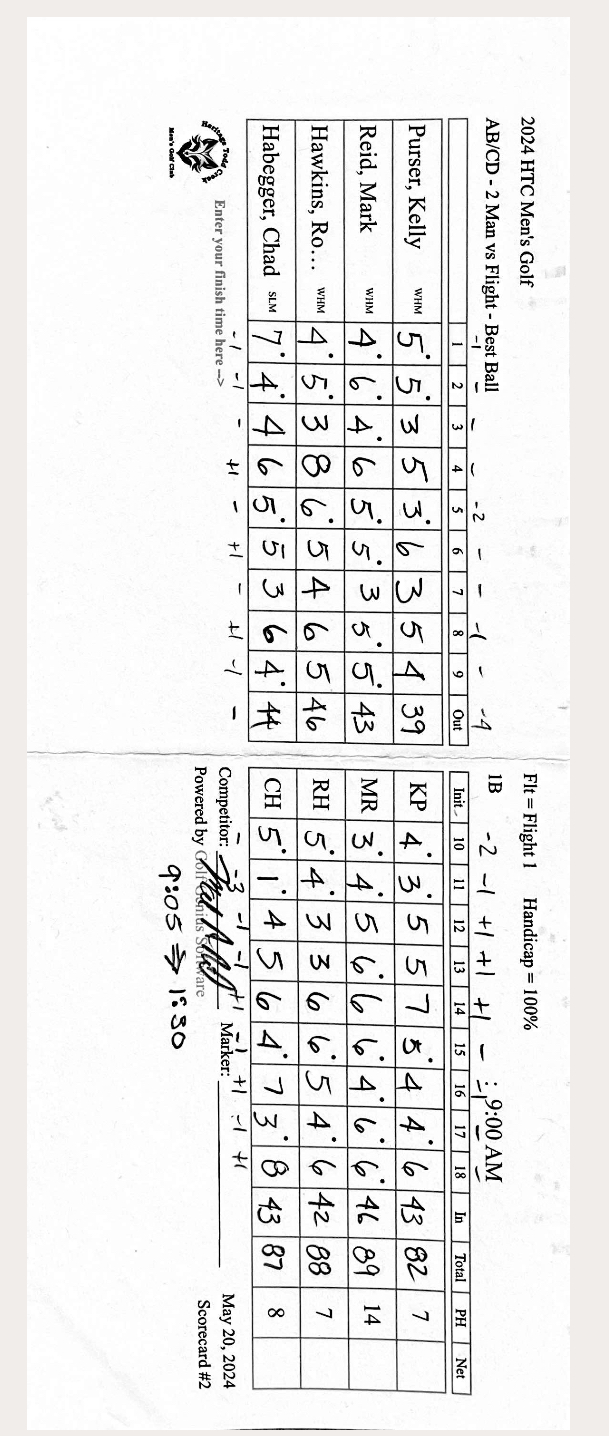 2024 HTC Men's Golf Flt = Flight 1 Handicap = 100%
AB/CD - 2 Man vs Flight - Best Ball 1B 9:00 AM
-1 - - - -2 - - -1 - -4 -2 -1 +1 +1 +1 -
1 2 3 4 5 6 7 8 9 Out Init. 10 11 12 13 14 15 16 17 18 In Total PH Net
Purser, Kelly WHM 5 5 3 5 3 6 3 5 4 39 KP 4 3 5 5 7 5 4 4 6 43 82 7
Reid, Mark WHM 4 6 4 6 5 5 3 5 5 43 MR 3 4 5 6 6 6 4 6 6 46 89 14
Hawkins, Ro... WHM 4 5 3 8 6 5 4 6 5 46 RH 5 4 3 3 6 6 5 4 6 42 88 7
Habegger, Chad SLM 7 4 4 6 5 5 3 6 4 44 CH 5 1 4 5 6 4 7 3 8 43 87 8
-1 -1 - +1 - +1 - +1 -1 - - -3 -1 -1 +1 -1 +1 -1 +1
Heritage Todd Creek
Men's Golf Club
Enter your finish time here ->
Competitor: Marker: May 20, 2024
Powered by Golf Genius Software Scorecard #2
9:05 → 1:30